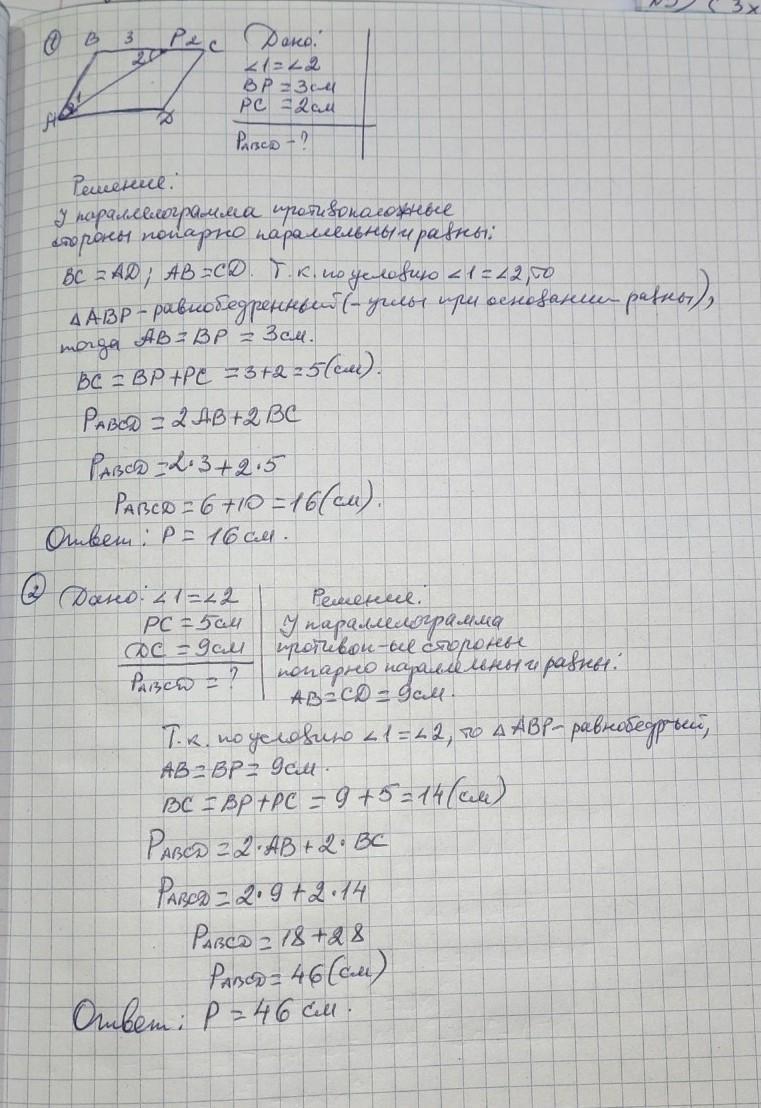 ① B 3 P 2 C
2
1
A D
Дано:
∠1=∠2
BP = 3см
PC = 2см
PABCD - ?
Решение:
У параллелограмма противоположные
стороны попарно параллельны и равны:
BC = AD; AB = CD. Т.к. по условию ∠1=∠2, то
△ABP - равнобедренный (- углы при основании - равны),
тогда AB = BP = 3см.
BC = BP+PC = 3+2=5(см).
PABCD = 2AB+2BC
PABCD = 2·3+2·5
PABCD = 6+10=16(см).
Ответ: P = 16см.
② Дано: ∠1=∠2
PC = 5см
DC = 9см
PABCD = ?
Решение:
У параллелограмма
противоп-ые стороны
попарно параллельны и равны:
AB=CD=9см.
Т.к. по условию ∠1=∠2, то △ABP- равнобедр-ый,
AB=BP=9см.
BC = BP+PC = 9+5=14(см)
PABCD = 2·AB+2·BC
PABCD = 2·9+2·14
PABCD = 18+28
PABCD = 46(см)
Ответ: P = 46 см.